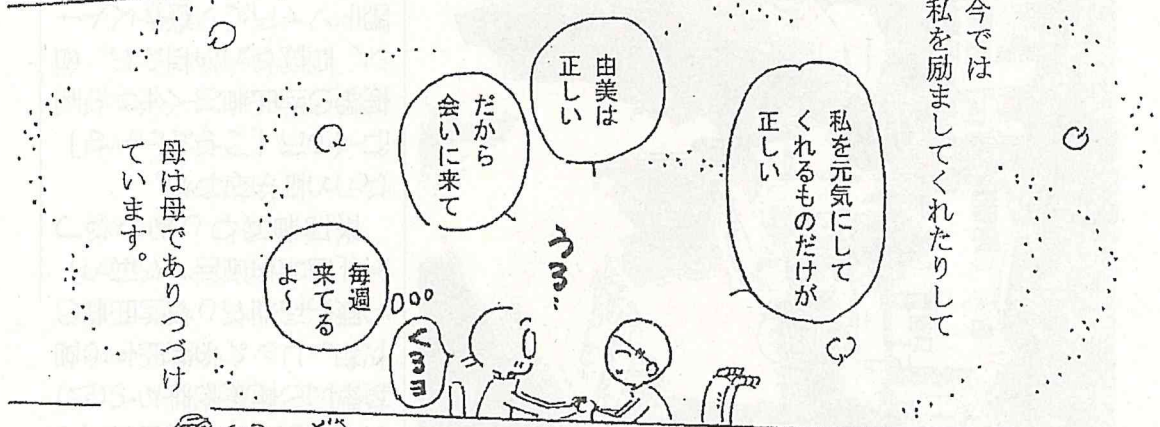 今では
私を励ましてくれたりして
私を元気にして
くれるものだけが
正しい
由美は
正しい
だから
会いに来て
うる…
毎週
来てる
よ〜
くるヨ
母は母でありつづけ
ています。